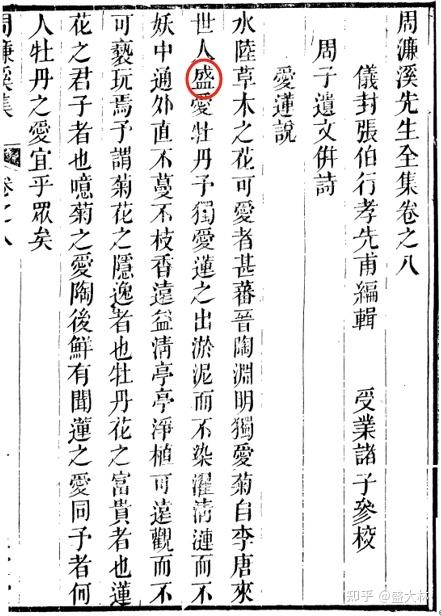 周濂溪先生全集卷之八
儀封張伯行孝先甫編輯 受業諸子參校
周子遺文併詩
愛蓮說
水陸草木之花可愛者甚蕃晉陶淵明獨愛菊自李唐來
世人盛愛牡丹予獨愛蓮之出淤泥而不染濯清漣而不
妖中通外直不蔓不枝香遠益清亭亭淨植可遠觀而不
可褻玩焉予謂菊花之隱逸者也牡丹花之富貴者也蓮
花之君子者也噫菊之愛陶後鮮有聞蓮之愛同予者何
人牡丹之愛宜乎眾矣
周濂溪集 卷之八
知乎 @盛大林